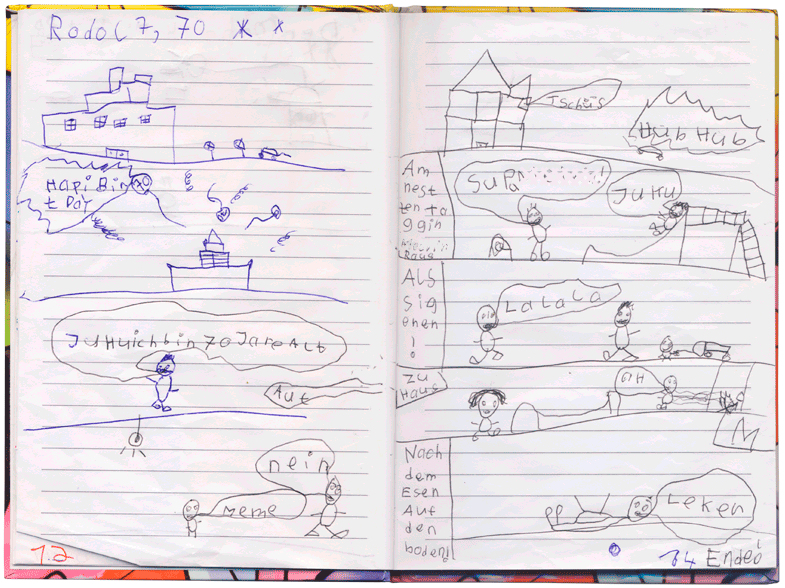 Rodol 7, 70
Hapi Bin
t Day
Juhuich bin 70 Jare Alt
Aut
nein
meme
1.2
Tschüs
Hüb Hüb
Am
nest
ten ta
ggin
Raus
Supa
JuHu
ALS
sig
ehen
!
LaLaLa
Zu
Haus
Nach
dem
Esen
Auf
den
boden!
Leken
34 Ende!